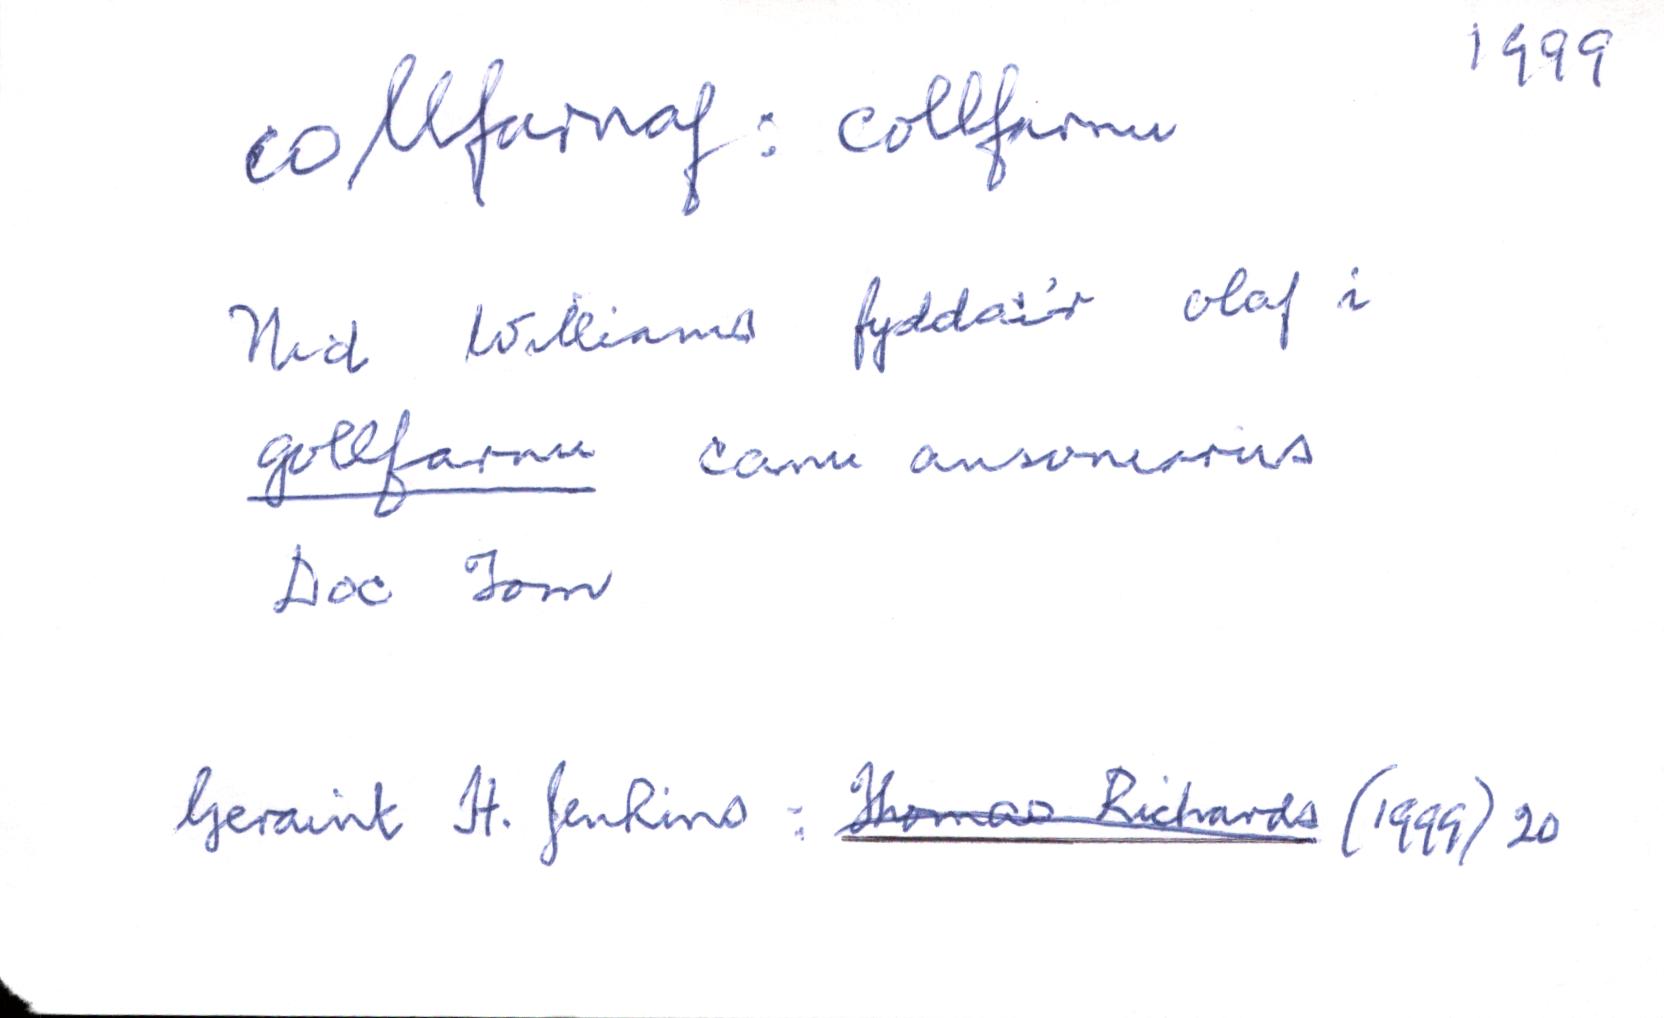 1999
collfarnaf : collfarnu
Nid Williams fyddai'r olaf i
gollfarnu canu ansoniarus
Doc Tom
Geraint H. Jenkins : Thomas Richards (1999) 20